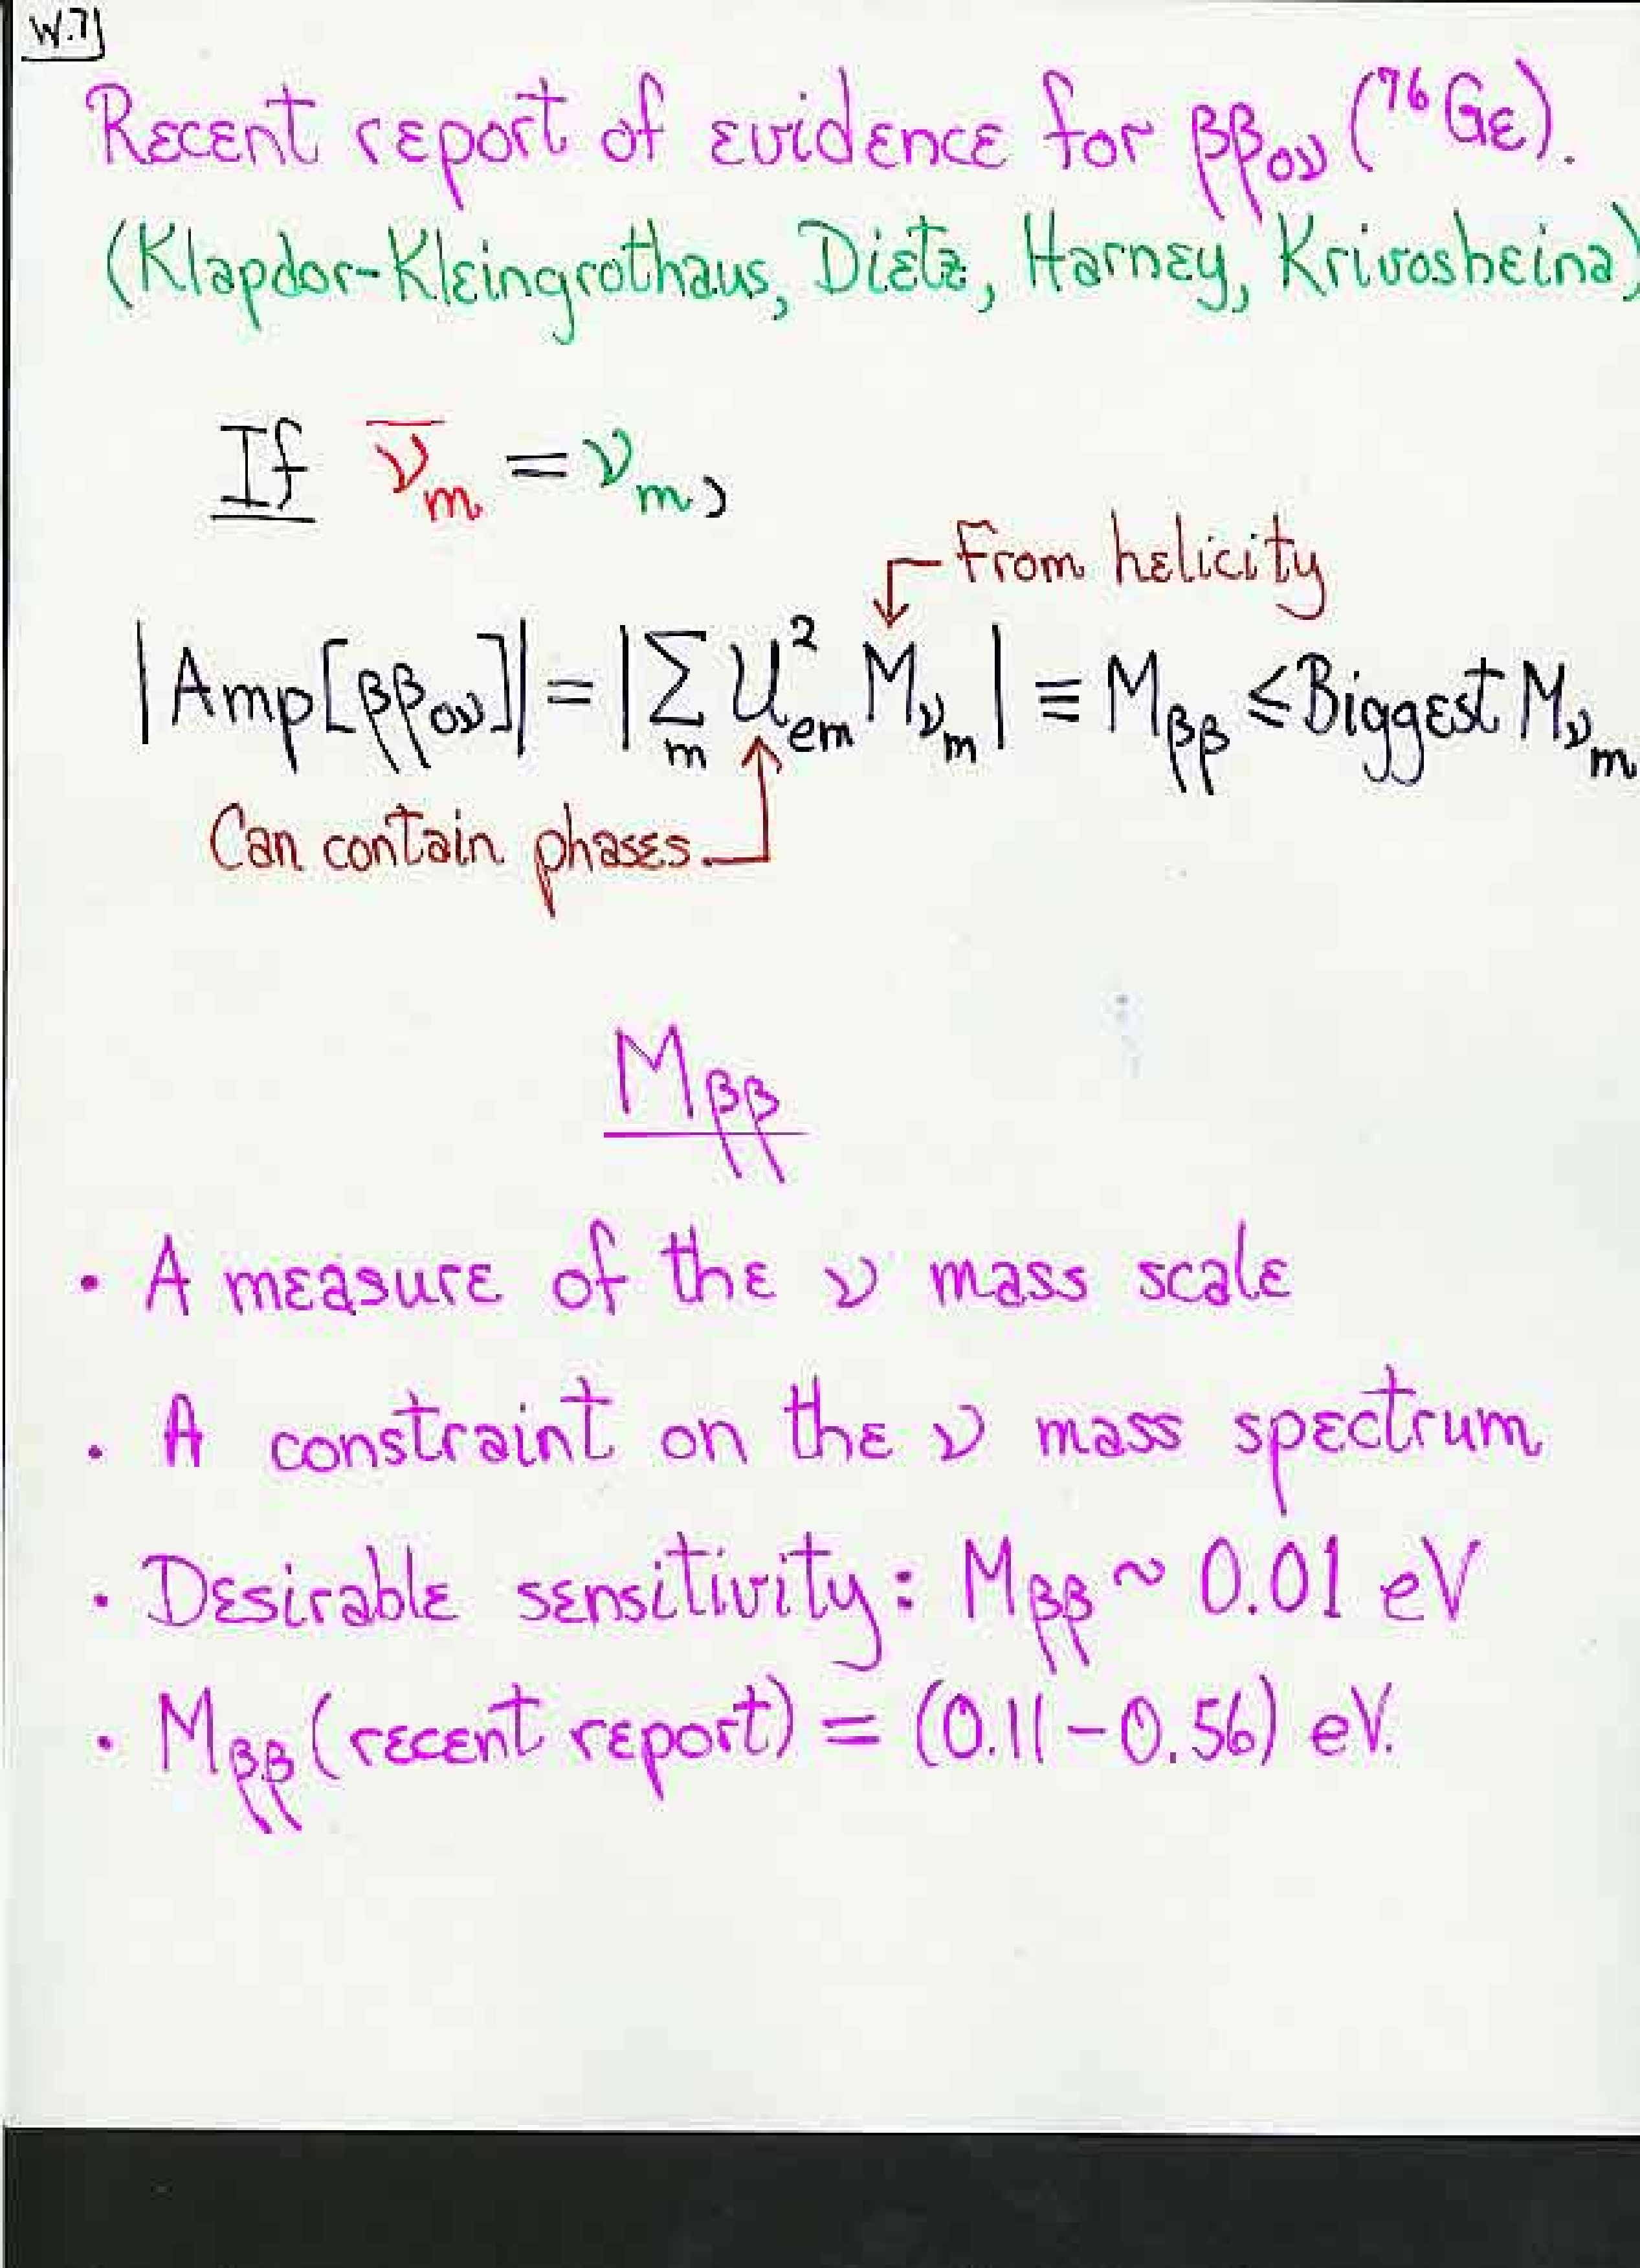 W.7
Recent report of evidence for ββ₀ν (⁷⁶Ge).
(Klapdor-Kleingrothaus, Dietz, Harney, Krivosheina)
If ν̅ₘ = νₘ,
From helicity
|Amp[ββ₀ν]| = |∑ₘ U²ₑₘ M_νₘ| ≡ M_ββ ≤ Biggest M_νₘ
Can contain phases
M_ββ
• A measure of the ν mass scale
• A constraint on the ν mass spectrum
• Desirable sensitivity: M_ββ ~ 0.01 eV
• M_ββ (recent report) = (0.11 – 0.56) eV.